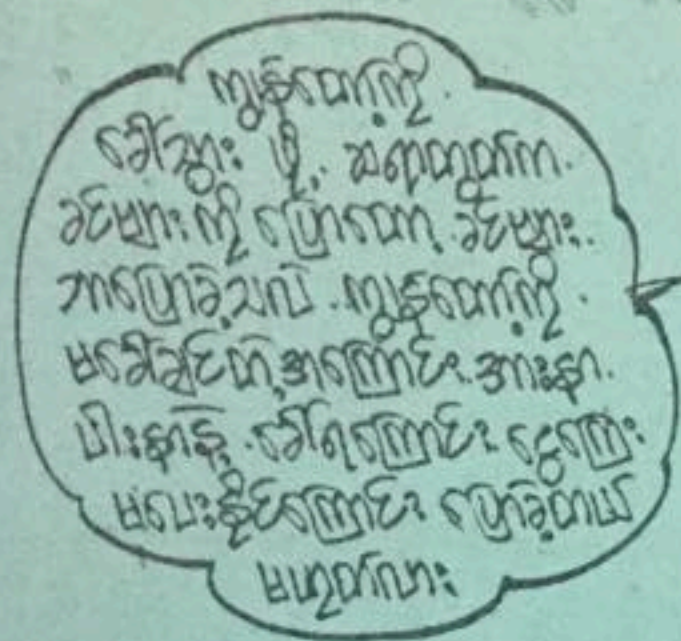 ကျွန်တော့်ကို
ခေါ်သွားဖို့ ဆရာထွတ်က
ခင်ဗျားကို ပြောတော့ ခင်ဗျား
ဘာပြောခဲ့သလဲ ကျွန်တော့်ကို
မခေါ်ချင်တဲ့အကြောင်း အားနာ
ပါးနာနဲ့ ခေါ်ရကြောင်း ငွေကြေး
မပေးနိုင်ကြောင်း ပြောခဲ့တယ်
မဟုတ်လား